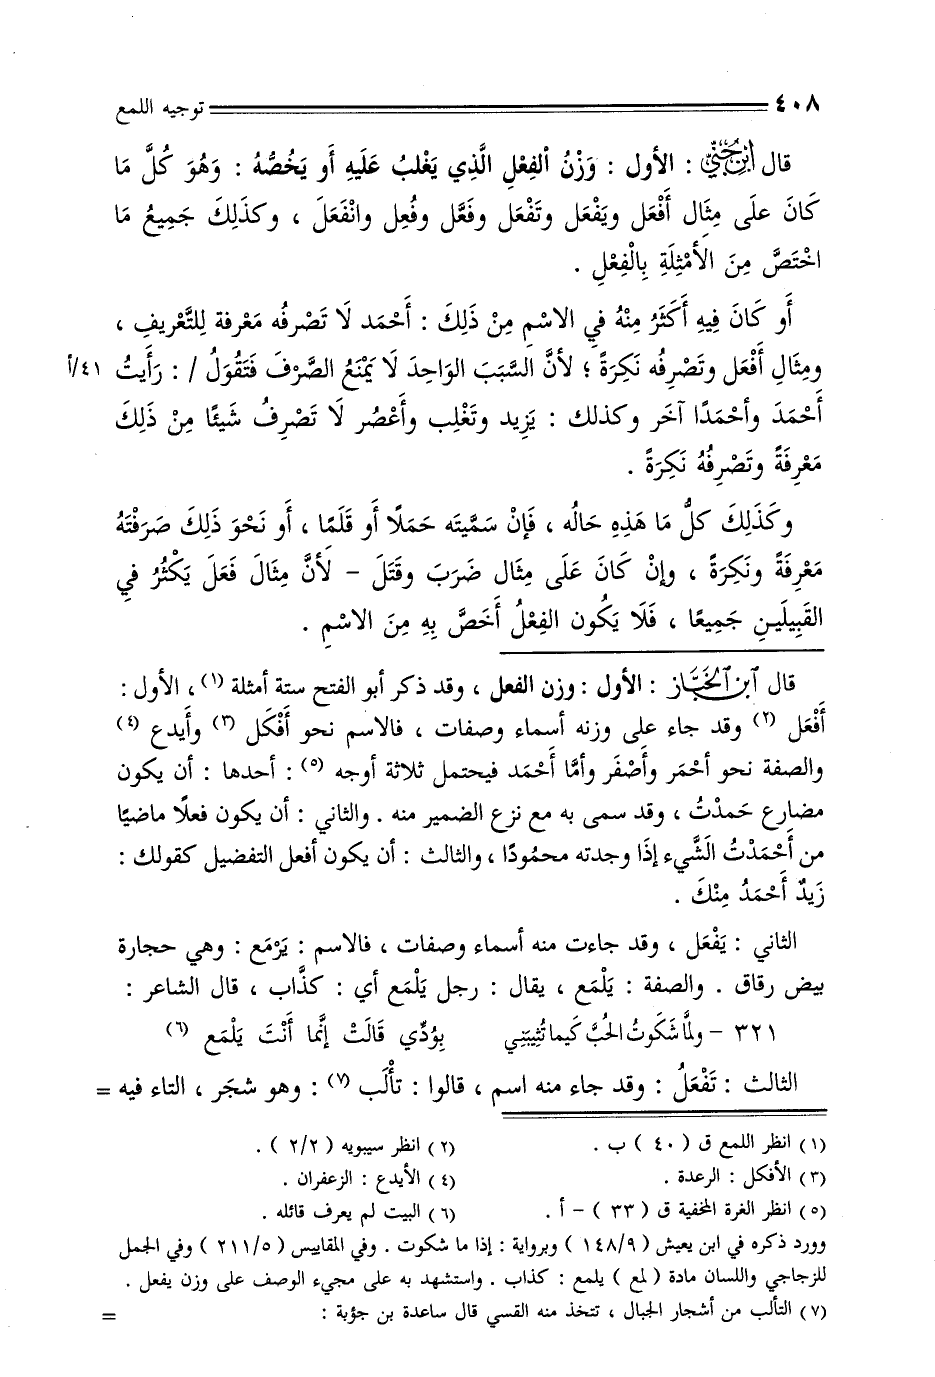 ٤٠٨ توجيه اللمع
قال ابن جني : الأول : وَزْنُ الفِعْلِ الَّذِي يَغْلبُ عَلَيهِ أو يَخُصُّهُ : وَهُوَ كُلَّ مَا
كَانَ علَى مِثَال أَفْعَل ويَفْعَل وتَفْعَل وفَعَّل وفُعِل وانْفَعَلَ ، وكذلِكَ جَمِيعُ مَا
اخْتَصَّ مِنَ الأَمْثِلَةِ بِالْفِعْلِ .
أَو كَانَ فِيهِ أَكَثَرُ مِنْهُ فِي الاسْمِ مِنْ ذَلِكَ : أَحْمَد لَا تَصْرفُه مَعْرفة لِلتَّعْرِيفِ ،
ومِثَالِ أَفْعَل وتَصْرفُه نَكِرَةً ؛ لأنَّ السَّبَبَ الوَاحِدَ لَا يَمْنَعُ الصَّرْفَ فَتَقُولُ / : رَأَيتُ ٤١/أ
أَحْمَدَ وأحْمَدًا آخَر وكذلك : يَزِيد وتَغْلِب وأَعْصُر لَا تَصْرِفُ شَيئًا مِنْ ذَلِكَ
مَعْرِفَةً وتَصْرِفُهُ نَكِرَةً .
وكَذَلِكَ كلُّ مَا هَذِهِ حَالُه ، فَإنْ سَمَّيتَه حَمَلًا أو قَلَمًا ، أو نَحْوَ ذَلِكَ صَرَفتَهُ
مَعْرِفَةً ونَكِرَةً ، وإنْ كَانَ عَلَى مِثَال ضَرَبَ وقَتَلَ - لأنَّ مِثَالَ فَعَلَ يَكْثُرُ فِي
القَبِيلَينِ جَمِيعًا ، فَلَا يَكُون الفِعْلُ أَخَصَّ بِهِ مِنَ الاسْمِ .
قال ابن الخباز : الأول : وزن الفعل ، وقد ذكر أبو الفتح ستة أمثلة (١) ، الأول :
أَفْعَل (٢) وقد جاء على وزنه أسماء وصفات ، فالاسم نحو أَفْكَل (٣) وأَيدع (٤)
والصفة نحو أحْمَر وأصْفَر وأمَّا أَحْمَد فيحتمل ثلاثة أوجه (٥) : أحدها : أن يكون
مضارع حَمدْتُ ، وقد سمى به مع نزع الضمير منه . والثاني : أن يكون فعلًا ماضيًا
من أَحْمَدْتُ الشَّيء إذَا وجدته محمُودًا ، والثالث : أن يكون أفعل التفضيل كقولك :
زَيدٌ أَحْمَدُ مِنْكَ .
الثاني : يَفْعَل ، وقد جاءت منه أسماء وصفات ، فالاسم : يَرْمَع : وهي حجارة
بيض رقاق . والصفة : يَلْمَع ، يقال : رجل يَلْمَع أي : كذَّاب ، قال الشاعر :
٣٢١ - ولمَّا شَكَوتُ الحُبَّ كَيمَا تُثِيبَنِي بِوُدِّي قَالَتْ إنَّما أَنْتَ يَلْمَع (٦)
الثالث : تَفْعَلُ : وقد جاء منه اسم ، قالوا : تألَب (٧) : وهو شجَر ، التاء فيه =
(١) انظر اللمع ق ( ٤٠ ) ب . (٢) انظر سيبويه ( ٢/٢ ) .
(٣) الأفكل : الرعدة . (٤) الأيدع : الزعفران .
(٥) انظر الغرة المخفية ق ( ٣٣ ) - أ . (٦) البيت لم يعرف قائله .
وورد ذكره في ابن يعيش ( ١٤٨/٩ ) وبرواية : إذا ما شكوت . وفي المقاييس ( ٢١١/٥ ) وفي الجمل
للزجاجي واللسان مادة ( لمع ) يلمع : كذاب . واستشهد به على مجيء الوصف على وزن يفعل .
(٧) التألب من أشجار الجبال ، تتخذ منه القسي قال ساعدة بن جؤية : =